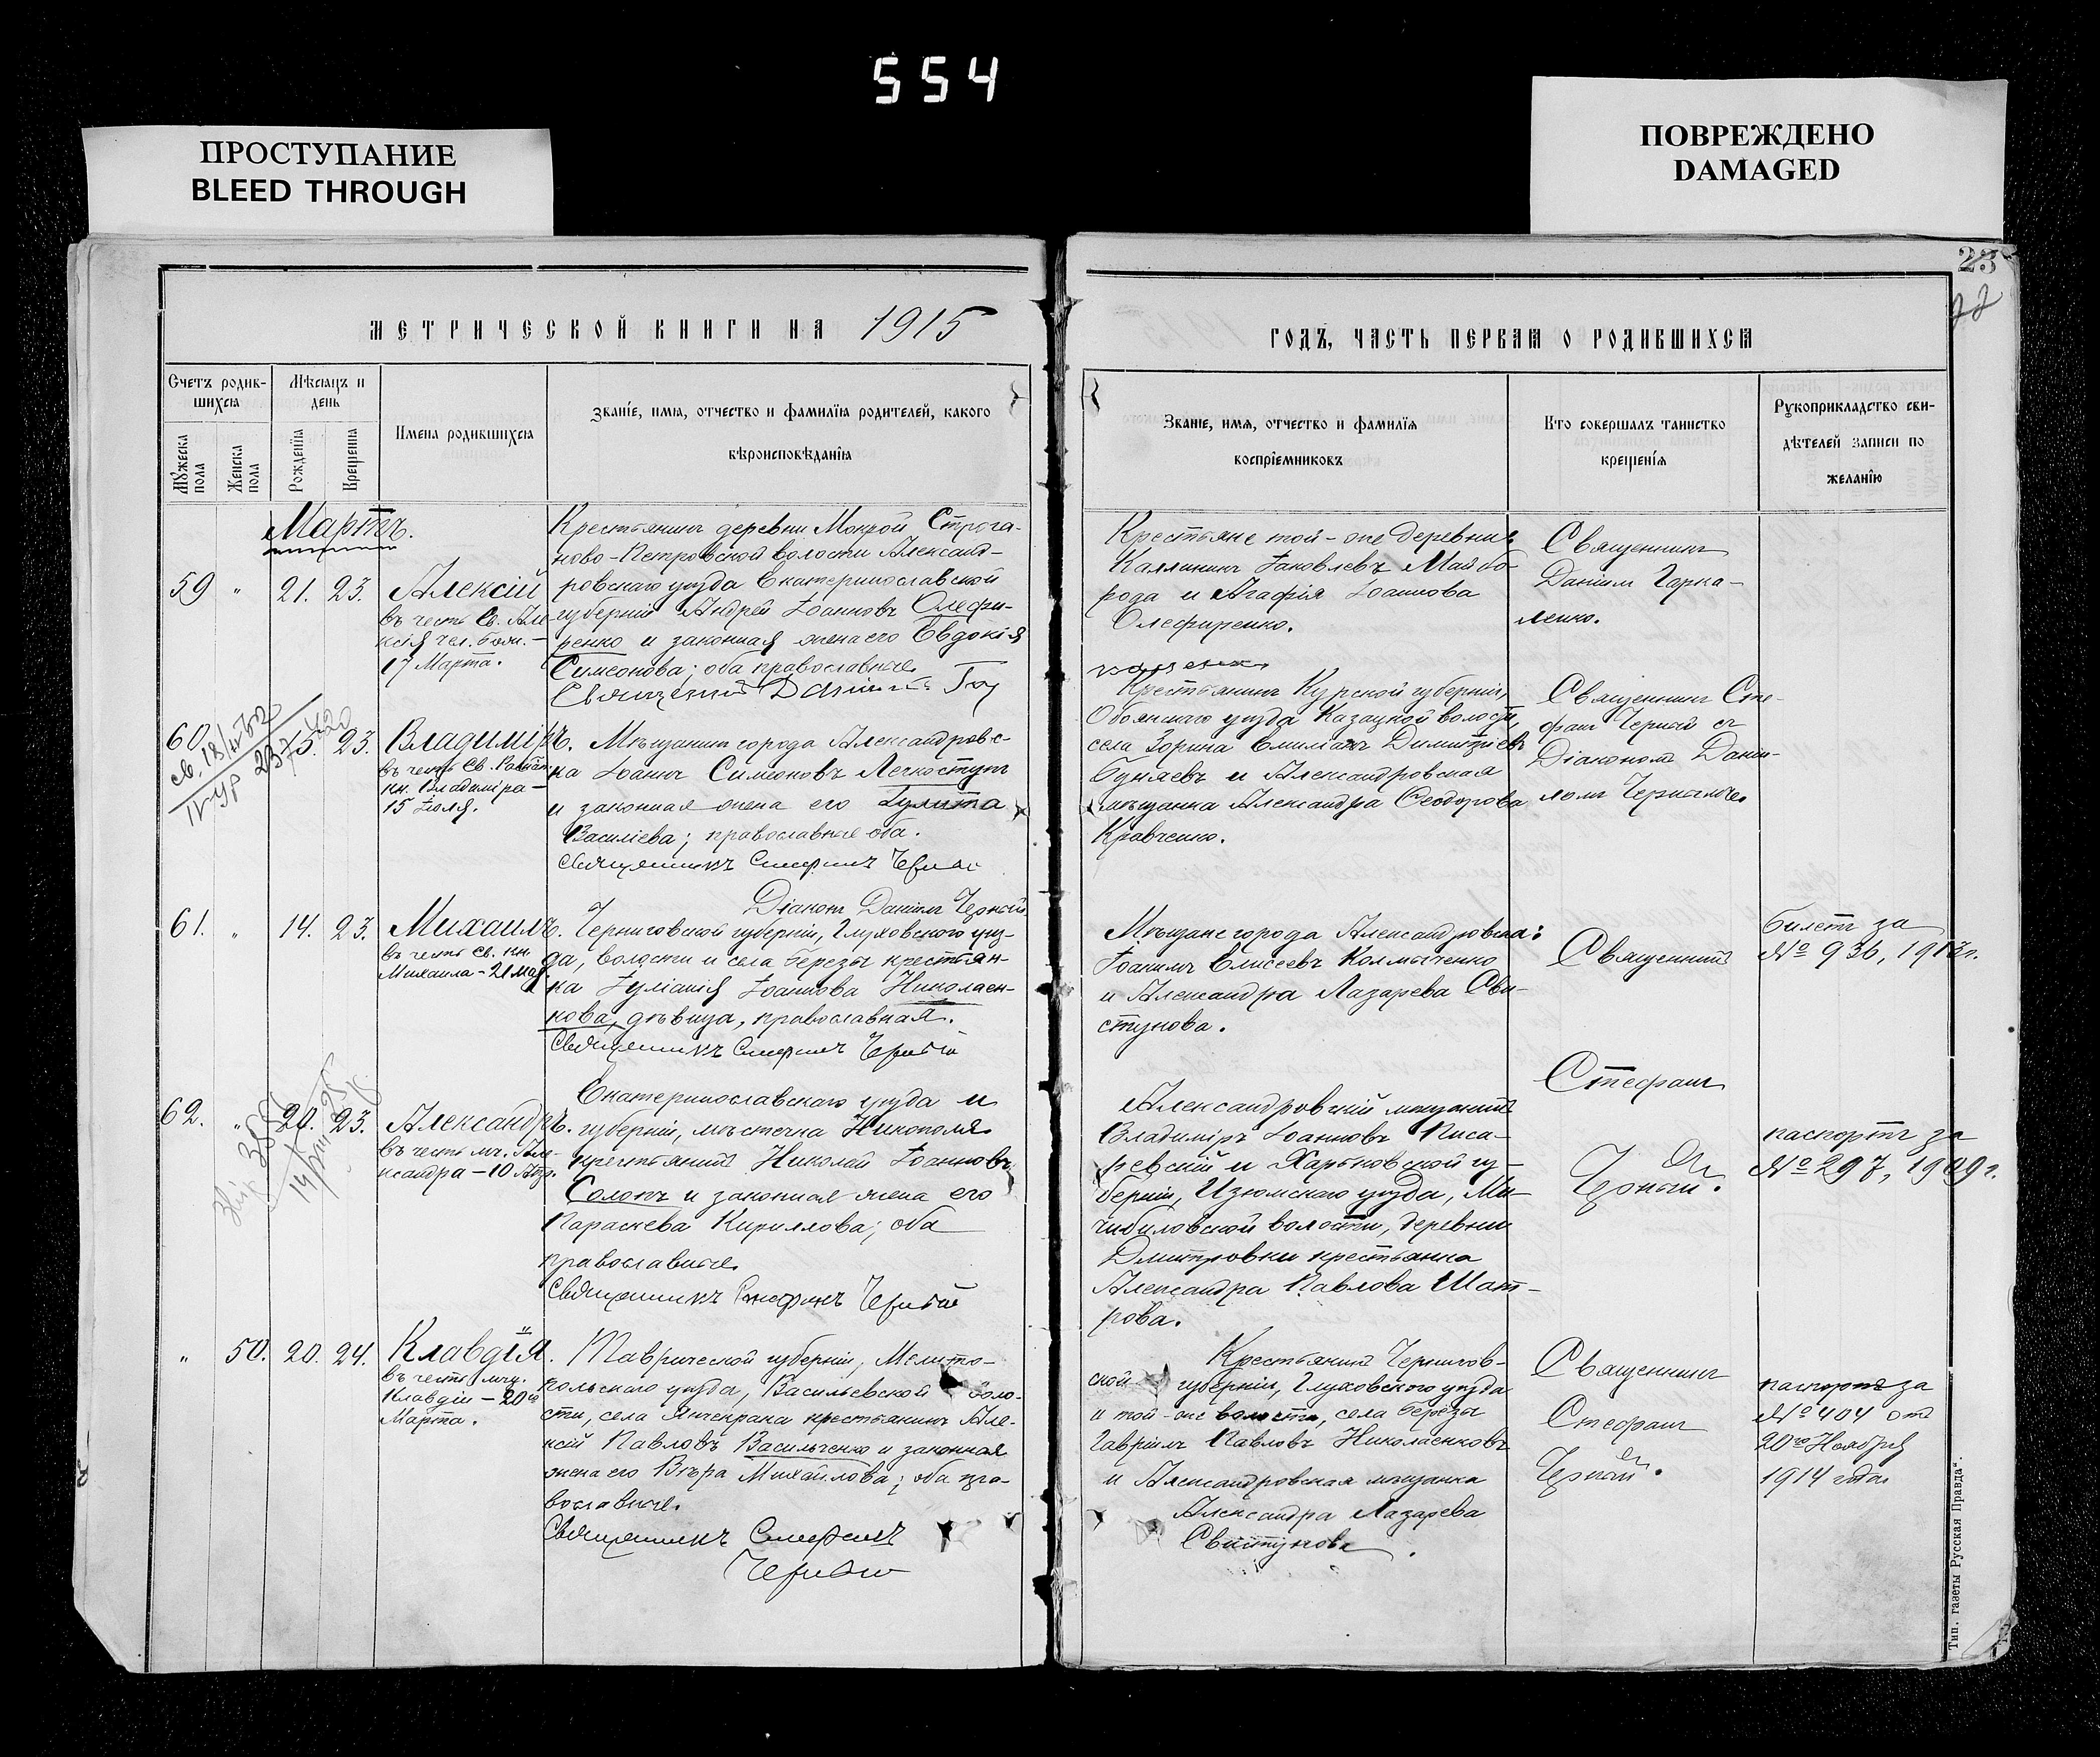 554
ПРОСТУПАНИЕ
BLEED THROUGH
ПОВРЕЖДЕНО
DAMAGED
23
22
МЕТРИЧЕСКОЙ КНИГИ НА 1915
ГОДЪ, ЧАСТЬ ПЕРВАЯ О РОДИВШИХСЯ
Счетъ родив-
шихся
Мѣсяцъ и
день
Имена родившихся
Званіе, имя, отчество и фамилія родителей, какого
вѣроисповѣданія
Мужеска пола
Женска пола
Рожденія
Крещенія
Званіе, имя, отчество и фамилія
воспріемниковъ
Кто совершалъ таинство
крещенія
Рукоприкладство сви-
дѣтелей записи по
желанію
Мартъ.
59 " 21. 23. Алексій
въ честь Св. Але-
ксія чел. Бож. -
17 Марта.
Крестьянинъ деревни Мокрой Строга-
ново-Петровской волости Александ-
ровскаго уѣзда Екатеринославской
губерніи Андрей Іоанновъ Олефи-
ренко и законная жена его Евдокія
Симеонова; оба православные.
Священникъ Даніилъ Гор
Крестьяне той-же деревни:
Каллиникъ Іаковлевъ Майбо-
рода и Агафія Іоаннова
Олефиренко.
Священникъ
Даніилъ Горка-
ленко.
60. 15. 23. Владиміръ.
въ честь Св. Равноап.
кн. Владиміра -
15 Іюля.
Мѣщанинъ города Александровс-
ка Іоаннъ Симеоновъ Легкоступъ
и законная жена его Іулитта
Василіева; православные оба.
Священникъ Стефанъ Черный
Діаконъ Даніилъ Черный
Крестьянинъ Курской губерніи,
Обоянскаго уѣзда Казацкой волости,
села Зорина Емиліанъ Димитріевъ
Будяевъ и Александровская
мѣщанка Александра Ѳеодорова
Кравченко.
Священникъ Сте-
фанъ Черный съ
Діакономъ Дании-
ломъ Чернымъ.
61. " 14. 23. Михаилъ.
въ честь Св. кн.
Михаила - 21 мая.
Черниговской губерніи, Глуховского уѣз-
да, волости и села Березы крестьян-
ка Іуліанія Іоаннова Николаен-
кова, дѣвица, православная.
Священникъ Стефанъ Черный
Мѣщане города Александровска:
Іоакимъ Елисеевъ Колмыченко
и Александра Лазарева Сви-
стунова.
Священникъ
билетъ за
№ 936, 1913г.
Стефанъ
62. " 20. 23. Александръ.
въ честь мч. Але-
ксандра - 10 Апр.
Екатеринославскаго уѣзда и
губерніи, мѣстечка Никополя
крестьянинъ Николай Іоанновъ
Солонъ и законная жена его
Параскева Кириллова; оба
православные.
Священникъ Стефанъ Черный
Александровскій мѣщанинъ
Владиміръ Іоанновъ Писа-
ревскій и Харьковской гу-
берніи, Изюмскаго уѣзда, Ме-
чибиловской волости, деревни
Дмитровки крестьянка
Александра Павлова Шат-
рова.
Черный.
паспортъ за
№ 297, 1909г.
" 50. 20. 24. Клавдія.
въ честь мчц.
Клавдіи - 20го
Марта.
Таврической губерніи, Мелито-
польскаго уѣзда, Васильевской воло-
сти, села Янчекрака крестьянинъ Але-
ксій Павловъ Васильченко и законная
жена его Вѣра Михайлова; оба пра-
вославные.
Священникъ Стефанъ
Черный
Крестьянинъ Чернигов-
ской губерніи, Глуховского уѣзда
и той-же волости, села Березы
Гавріилъ Павловъ Николаенковъ
и Александровская мѣщанка
Александра Лазарева
Свистунова.
Священникъ
Стефанъ
Черный.
паспортъ за
№ 404 отъ
20го Ноября
1914 года
Тип. газеты „Русская Правда“.